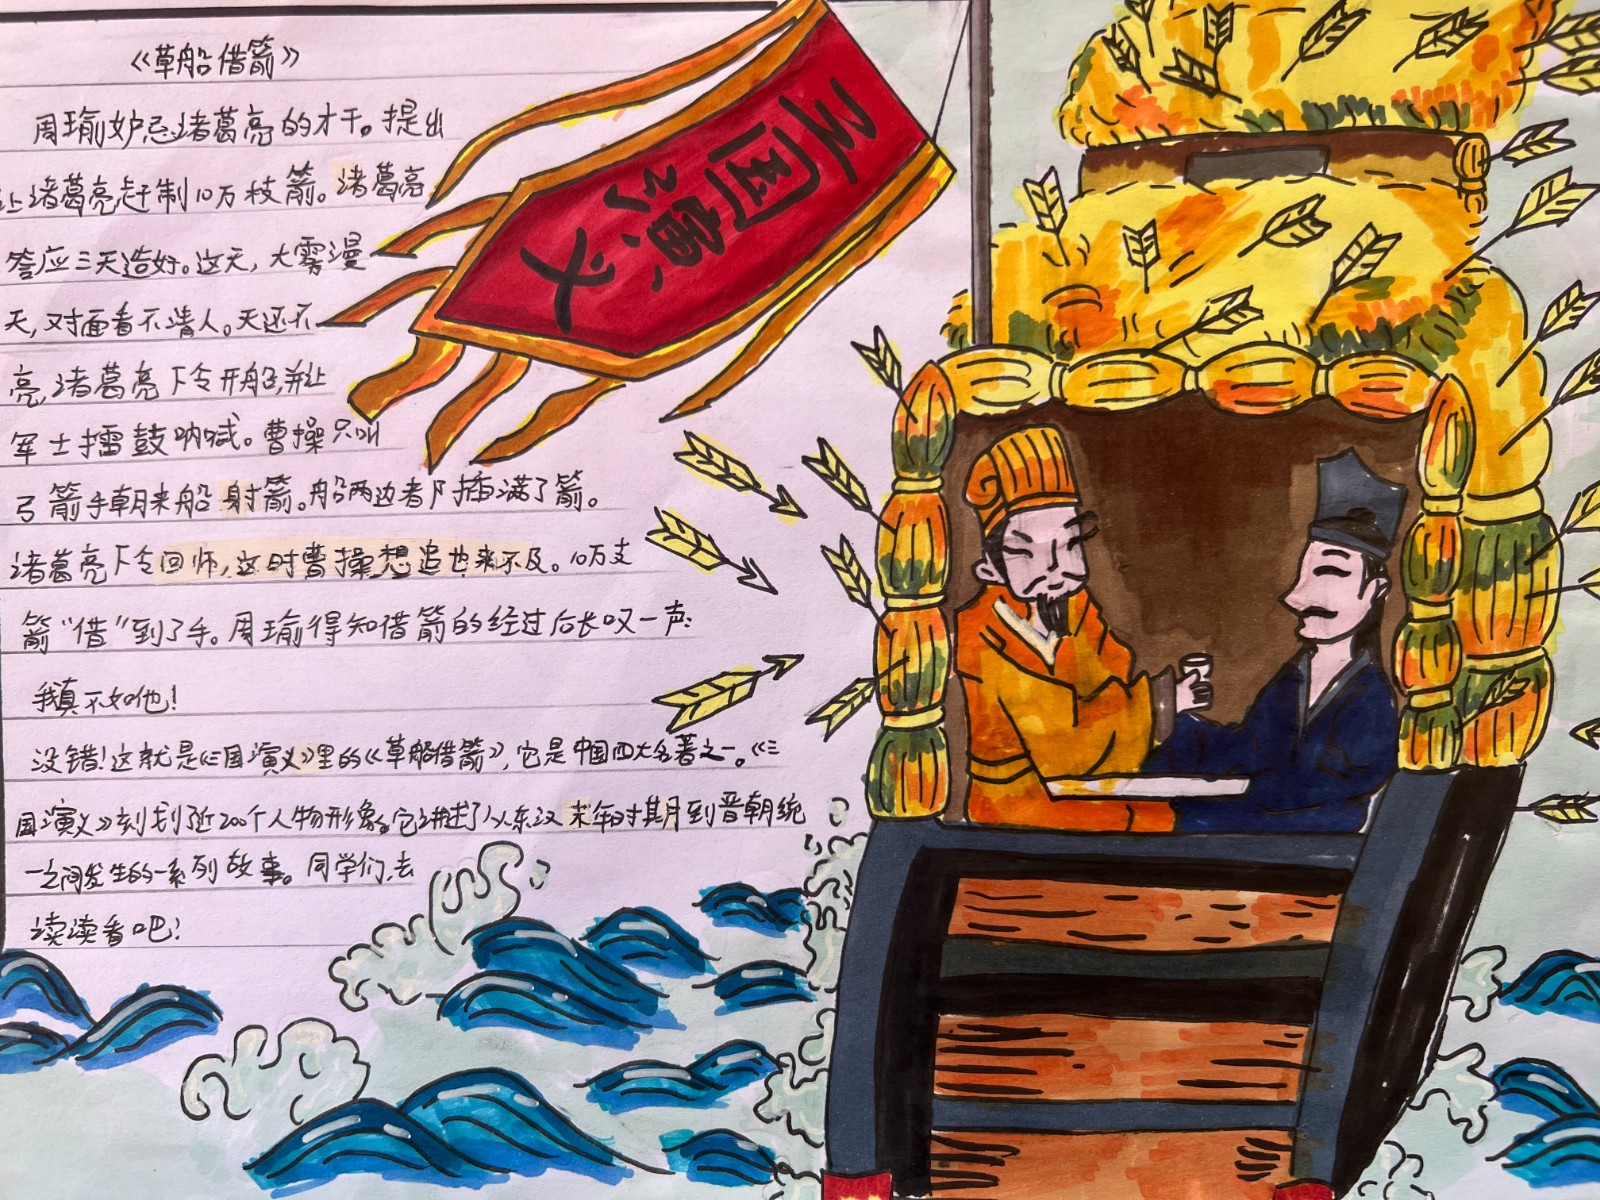 《草船借箭》
周瑜妒忌诸葛亮的才干。提出
让诸葛亮赶制10万枝箭。诸葛亮
答应三天造好。这天,大雾漫
天,对面看不清人。天还不
亮,诸葛亮下令开船,并让
军士擂鼓呐喊。曹操只叫
弓箭手朝来船射箭。船两边都插满了箭。
诸葛亮下令回师,这时曹操想追也来不及。10万支
箭“借”到了手。周瑜得知借箭的经过后长叹一声:
我真不如他!
没错!这就是《三国演义》里的《草船借箭》,它是中国四大名著之一。《三
国演义》刻划了近200个人物形象。它讲述了从东汉末年时其月到晋朝统
一之间发生的一系列故事。同学们,去
读读看吧!
三国演义